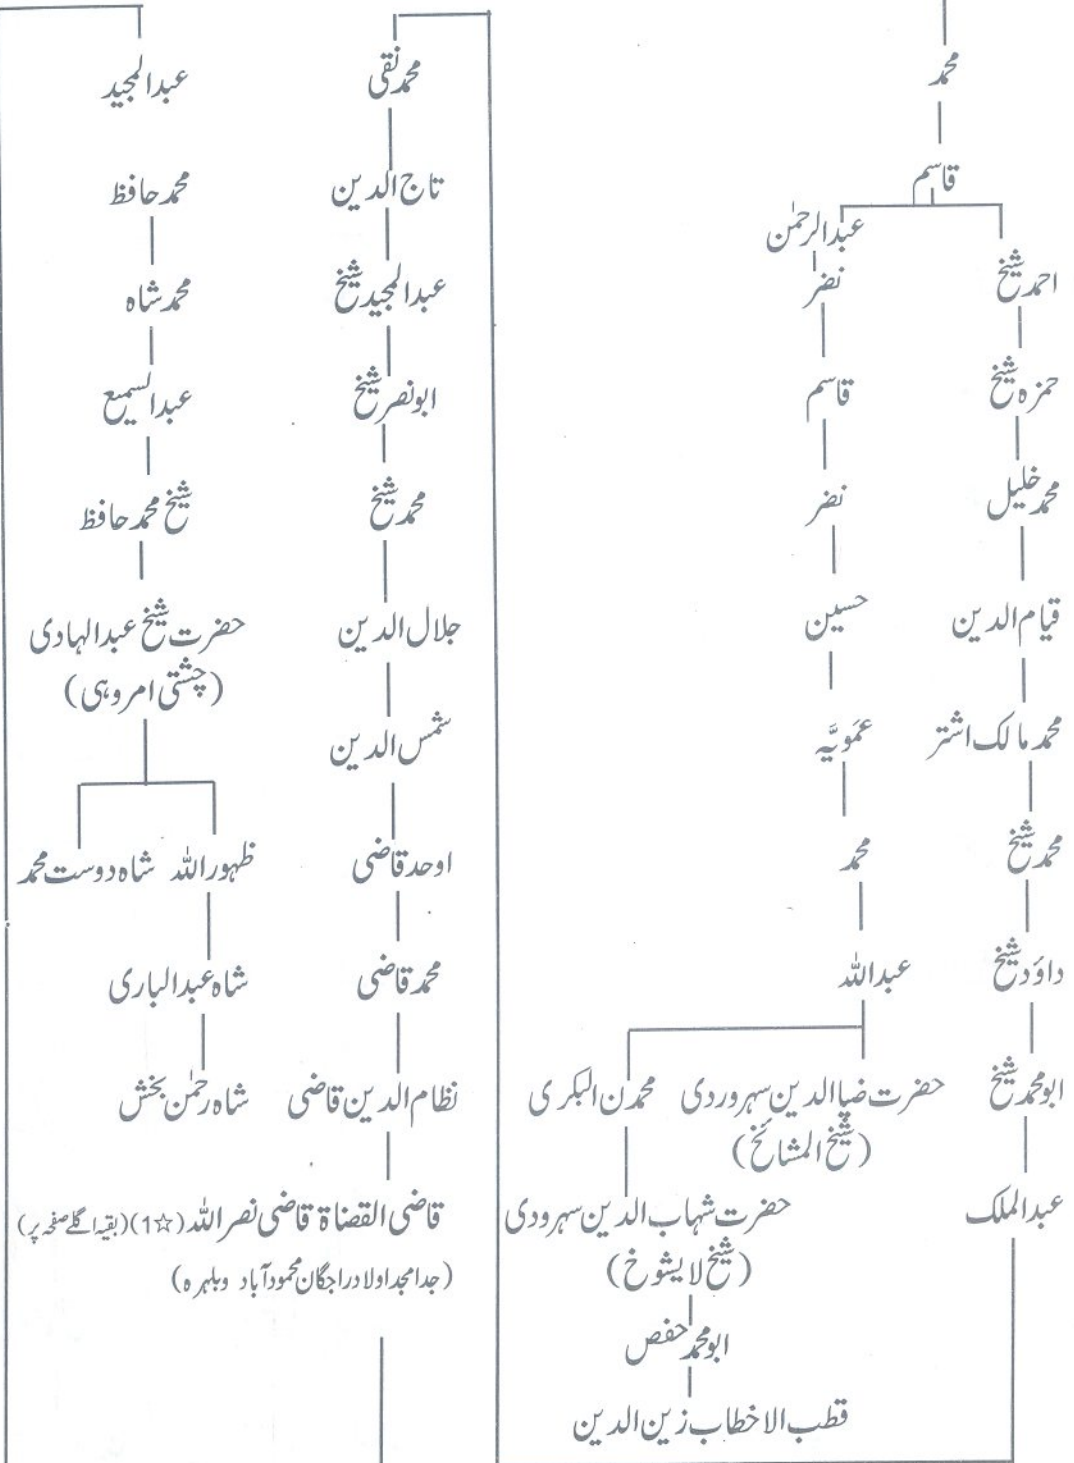 محمد
قاسم
احمد شیخ
حمزہ شیخ
محمد خلیل
قیام الدین
محمد مالک اشتر
محمد شیخ
داؤد شیخ
ابو محمد شیخ
عبدالملک
عبدالرحمٰن
نضر
قاسم
نضر
حسین
عمویَّہ
محمد
عبداللہ
حضرت ضیاالدین سہروردی
(شیخ المشائخ)
محمدن البکری
حضرت شہاب الدین سہرودی
(شیخ لایشوخ)
ابو محمد حفص
قطب الاخطاب زین الدین
محمد نقی
تاج الدین
عبدالمجید شیخ
ابونصر شیخ
محمد شیخ
جلال الدین
شمس الدین
اوحد قاضی
محمد قاضی
نظام الدین قاضی
قاضی القضاۃ قاضی نصر اللہ (☆1) (بقیہ اگلے صفحہ پر)
(جدامجد اولاد راجگان محمودآباد وبلہرہ)
عبدالمجید
محمد حافظ
محمد شاہ
عبدالسمیع
شیخ محمد حافظ
حضرت شیخ عبدالہادی
(چشتی امروہی)
ظہور اللہ
شاہ دوست محمد
شاہ عبدالباری
شاہ رحمٰن بخش